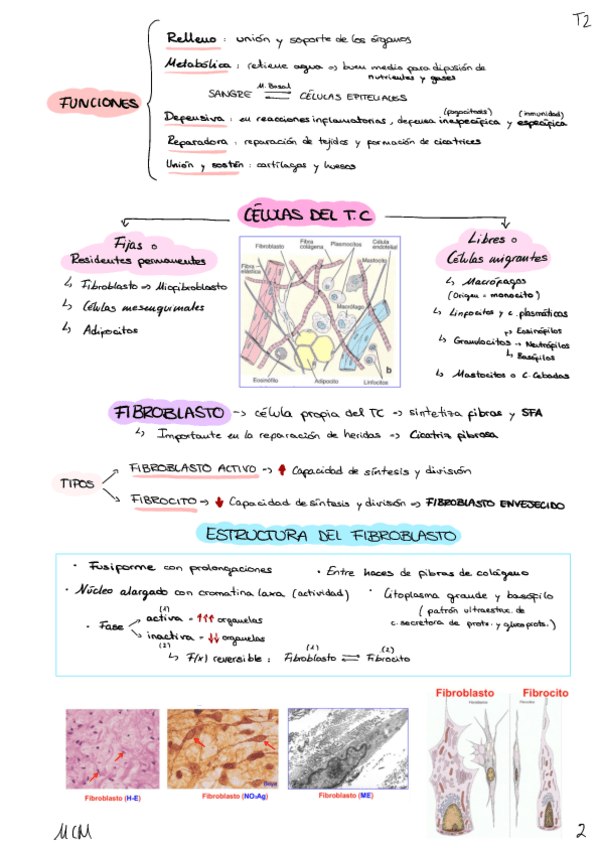 T2
Relleno : unión y soporte de los órganos
Metabólica : retiene agua => buen medio para difusión de
nutrientes y gases
M. Basal
SANGRE ⇌ CÉLULAS EPITELIALES
FUNCIONES
(fagocitosis) (inmunidad)
Defensiva : en reacciones inflamatorias, defensa inespecífica y específica
Reparadora : reparación de tejidos y formación de cicatrices
Unión y sostén : cartílagos y huesos
CÉLULAS DEL T.C
Fijas o
Residentes permanentes
↳ Fibroblasto => Miofibroblasto
↳ Células mesenquimales
↳ Adipocitos
Fibroblasto
Fibra colágena
Plasmocitos
Célula endotelial
Fibra elástica
Mastocito
Macrófago
b
Eosinófilo
Adipocito
Linfocitos
Libres o
Células migrantes
↳ Macrófagos
(Origen = monocito)
↳ Linfocitos y c. plasmáticas
Eosinófilos
↳ Granulocitos → Neutrófilos
↳ Basófilos
↳ Mastocitos o C. Cebadas
FIBROBLASTO -> célula propia del TC -> sintetiza fibras y SFA
↳ Importante en la reparación de heridas -> Cicatriz fibrosa
TIPOS
FIBROBLASTO ACTIVO -> ↑ Capacidad de síntesis y división
FIBROCITO -> ↓ Capacidad de síntesis y división -> FIBROBLASTO ENVEJECIDO
ESTRUCTURA DEL FIBROBLASTO
· Fusiforme con prolongaciones
· Entre haces de fibras de colágeno
· Núcleo alargado con cromatina laxa (actividad)
· Citoplasma grande y basófilo
( patrón ultraestruc. de
c. secretora de prots. y glucoprots.)
· Fase
(1)
activa = ↑↑↑ organelas
inactiva = ↓↓ organelas
(2)
(1) (2)
↳ F(x) reversible : Fibroblasto ⇌ Fibrocito
Fibroblasto Fibrocito
Fibroblasto (H-E)
Fibroblasto (NO3Ag)
Fibroblasto (ME)
MCM
2